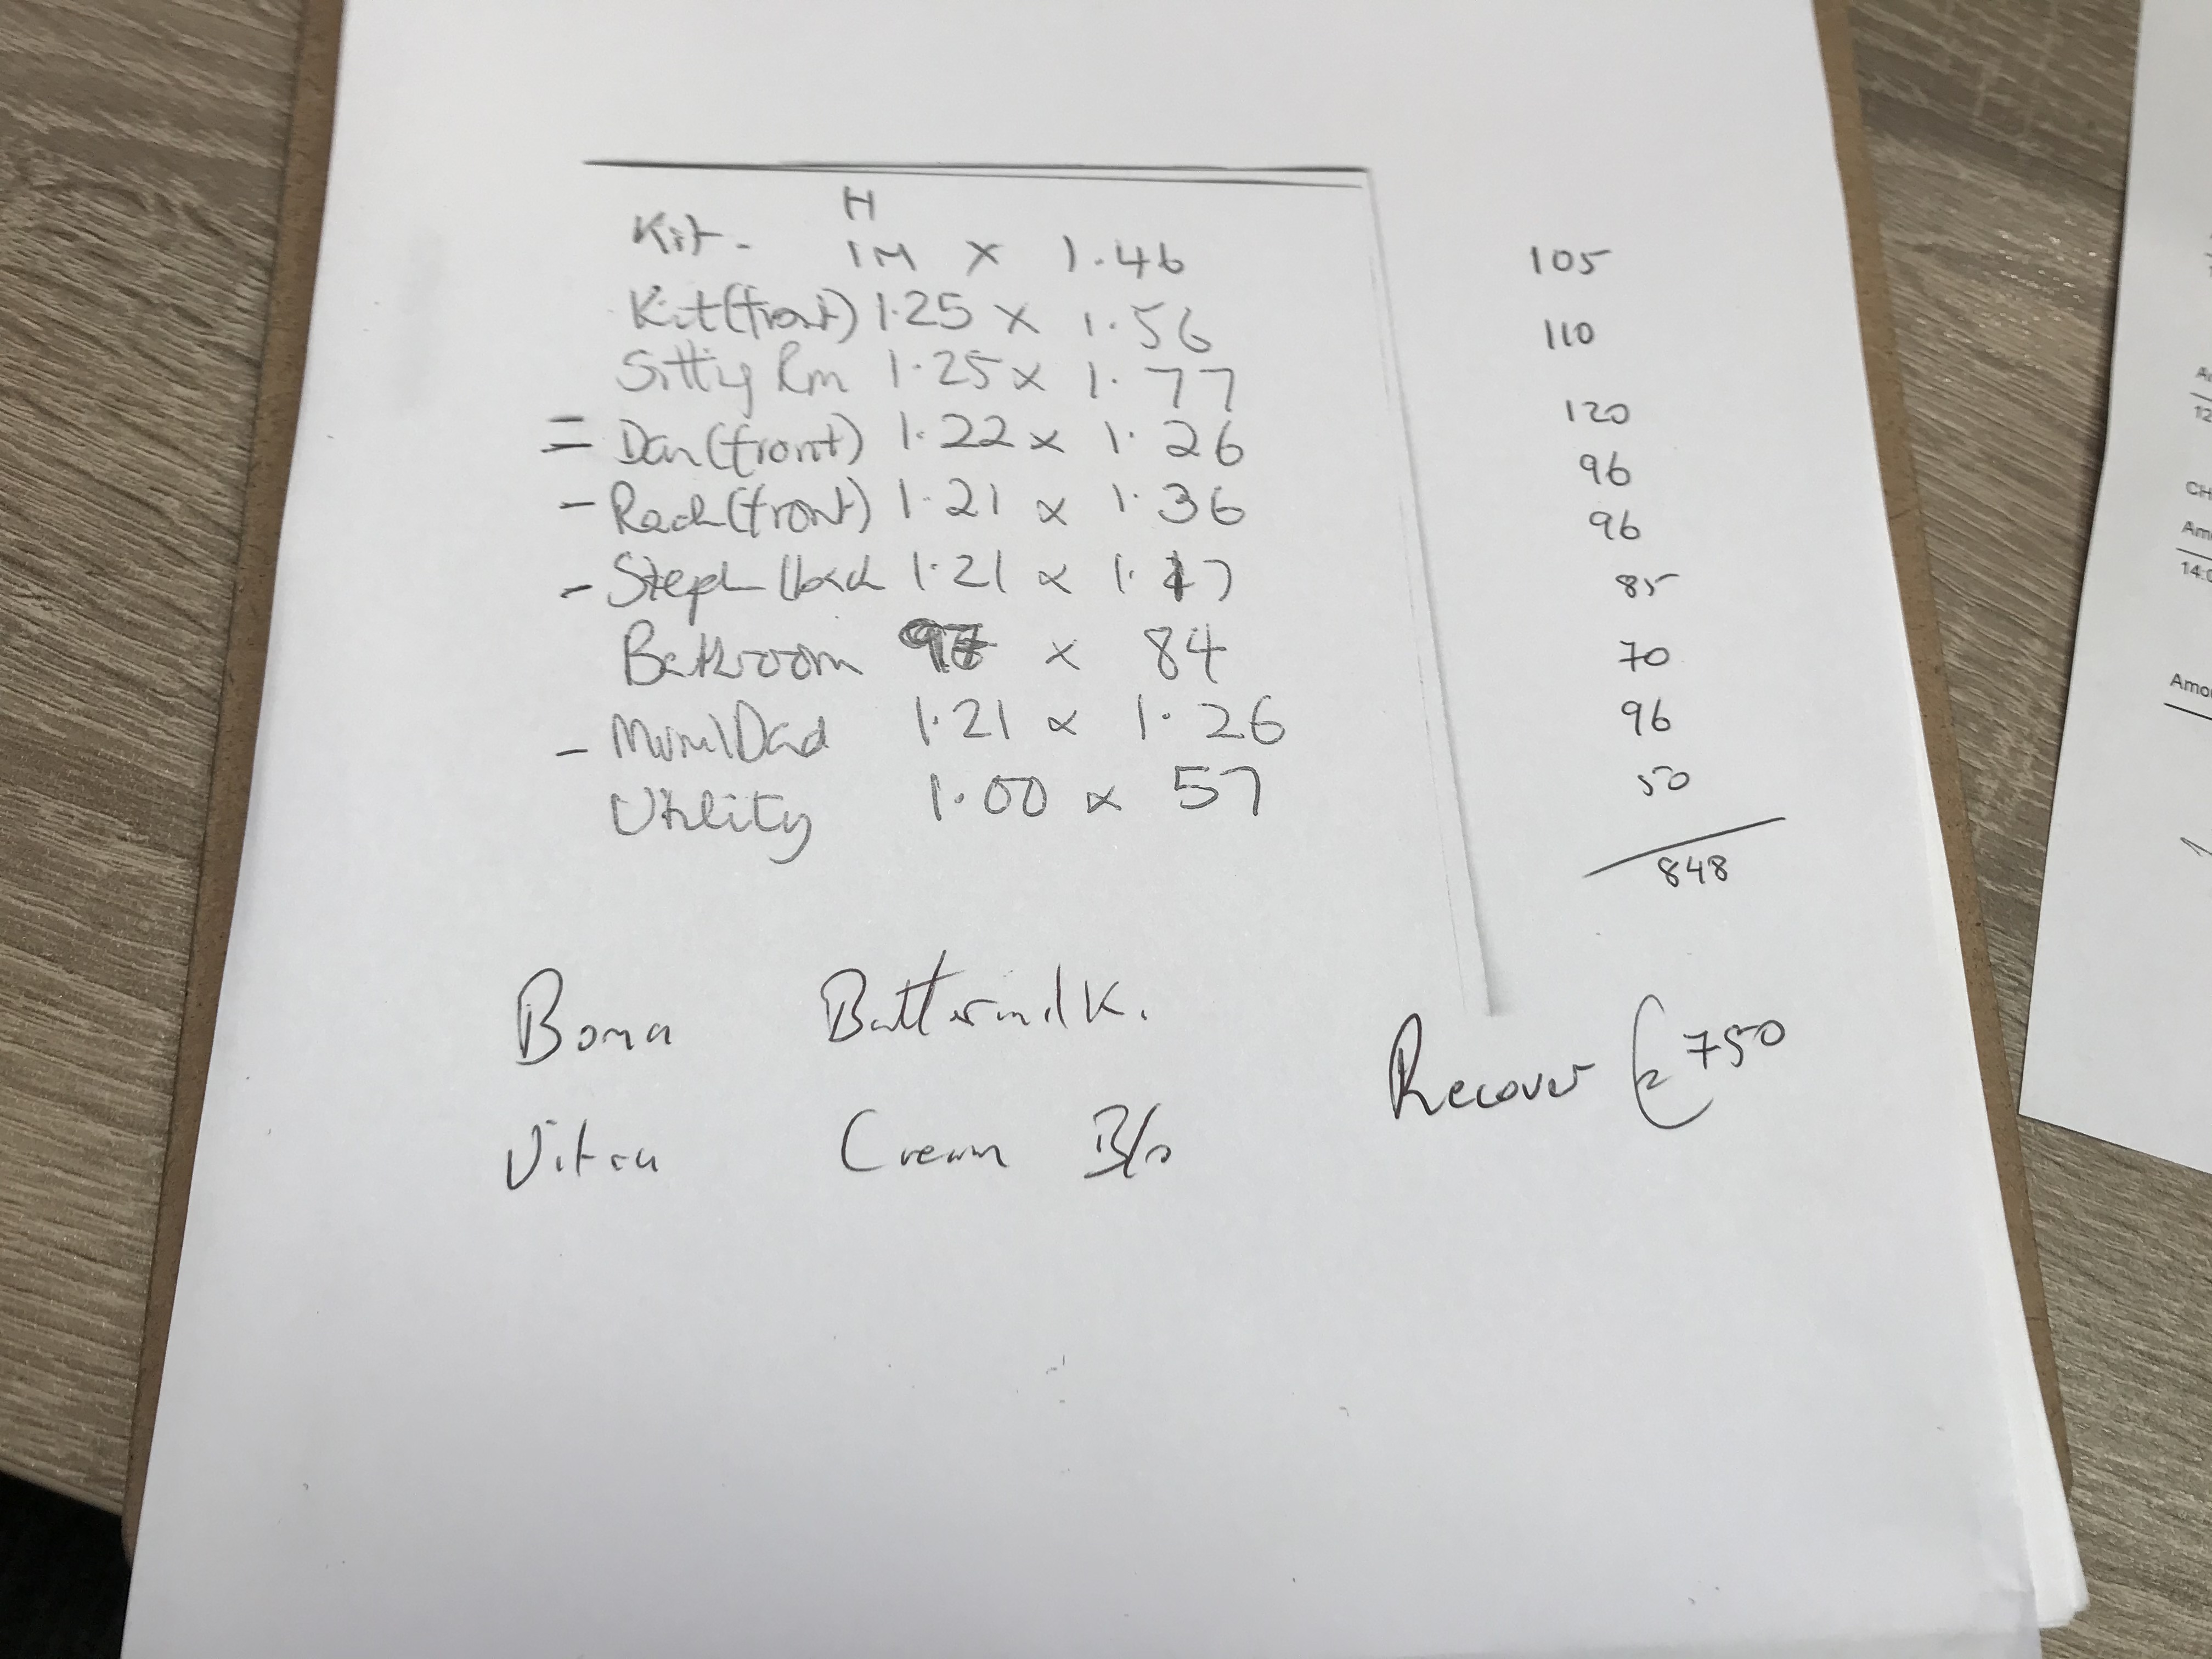 H
Kit - 1M x 1.46 105
Kit (front) 1.25 x 1.56 110
Sittig Rm 1.25 x 1.77 120
= Dan (front) 1.22 x 1.26 96
- Rach (front) 1.21 x 1.36 96
- Steph 1.21 x 1.17 85
Bathroom x 84 70
- Mum/Dad 1.21 x 1.26 96
Utility 1.00 x 57 50
848
Boma Buttermilk.
Recover € 750
Cream B/o
12
CH
Am
14:0
Amo